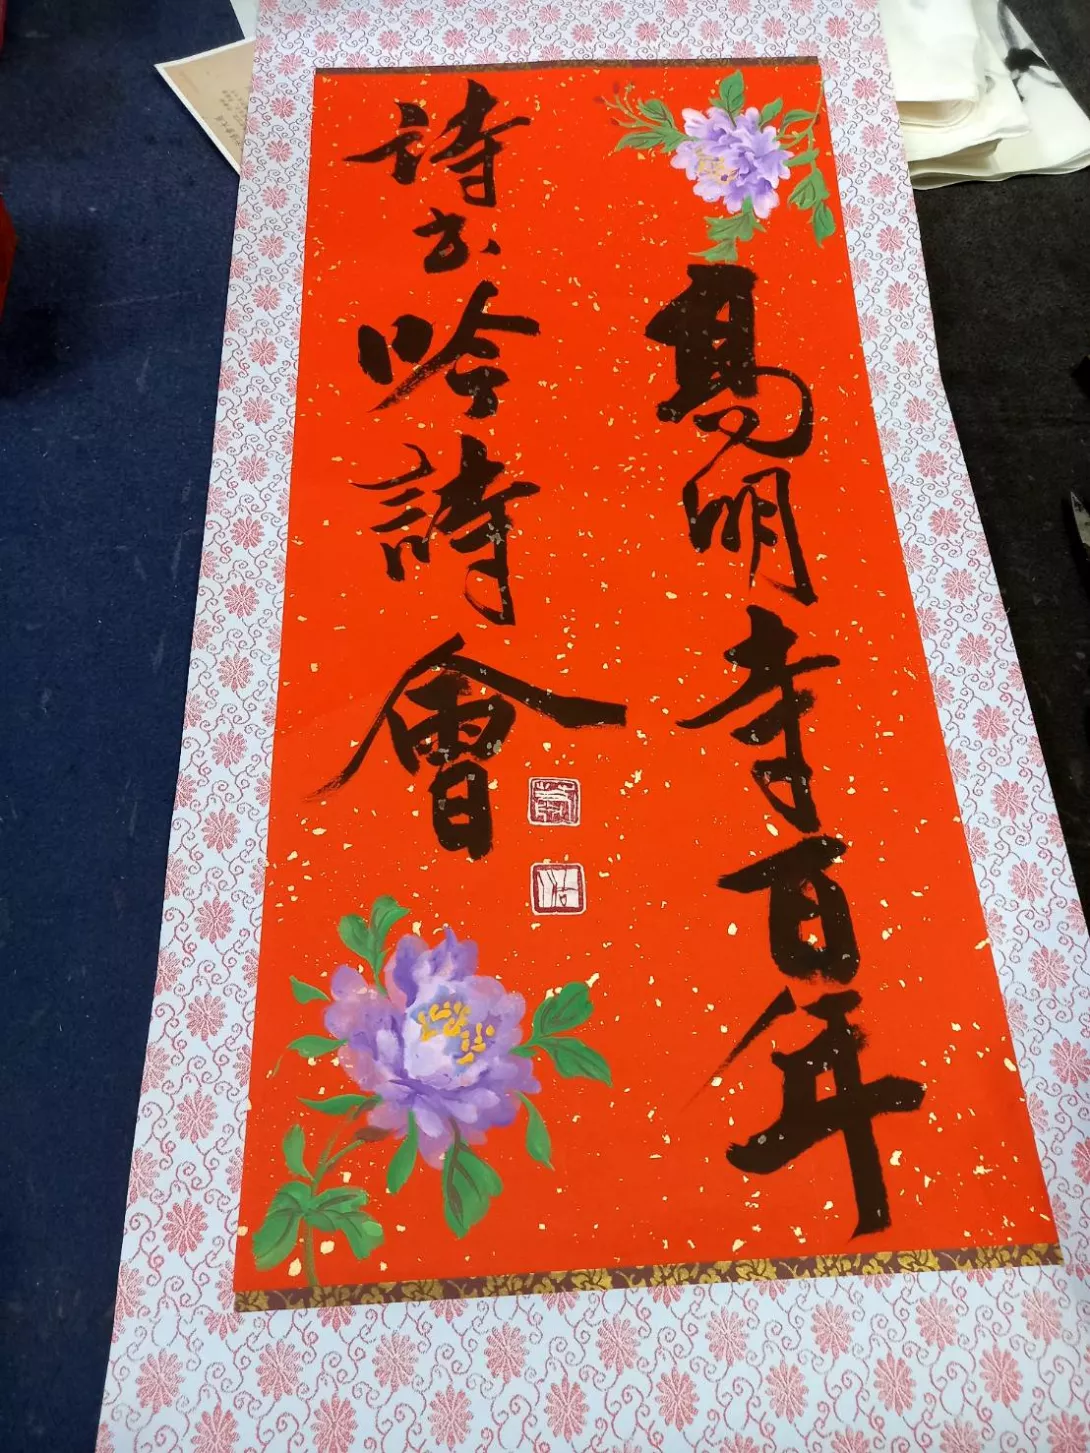 高明寺百年
詩书吟詩會